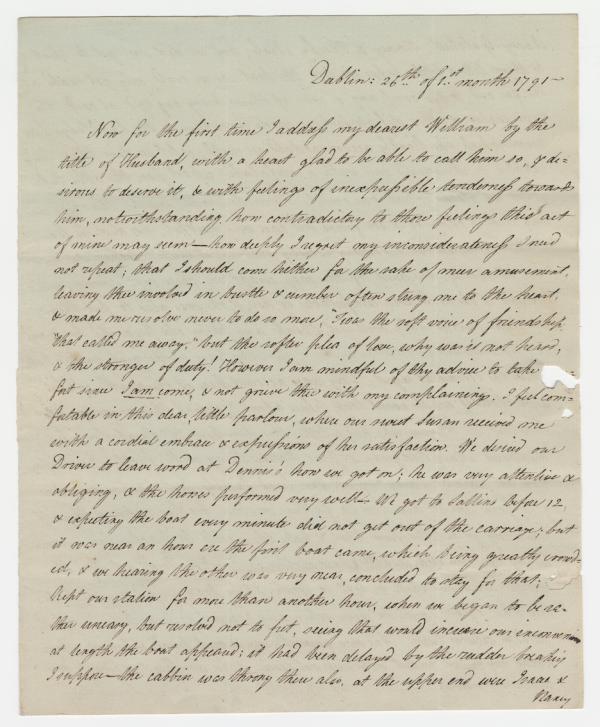 Dublin: 26th. of 1st. month 1791—
Now for the first time I address my dearest William by the
title of Husband, with a heart glad to be able to call him so, & de-
sirous to deserve it, & with feelings of inexpressible tenderness towards
him, notwithstanding how contradictory to those feelings this act
of mine may seem — how deeply I regret my inconsiderateness I need
not repeat; that I should come hither for the sake of mere amusement,
leaving thee involved in bustle & cumber often stung me to the heart,
& made me resolve never to do so more, "Twas the soft voice of friendship
"that called me away," but the softer plea of love, why was it not heard,
& the stronger of duty! However I am mindful of thy advice to take
fort since I am come, & not grieve thee with my complainings. I feel com-
fortable in this dear little parlour, where our sweet Susan received me
with a cordial embrace & expressions of her satisfaction. We desired our
Driver to leave word at Dennis's how we got on; he was very attentive &
obliging, & the horses performed very well — We got to Sallins before 12,
& expecting the boat every minute did not get out of the carriage; but
it was near an hour ere the first boat came, which being greatly crowd-
ed, & we hearing the other was very near, concluded to stay for that,
kept our station for more than another hour, when we began to be ra-
ther uneasy, but resolved not to fret, seeing that would increase our
at length the boat appeared: it had been delayed by the rudder breaking
I suppose — the cabbin was throng there also, at the upper end were Isaac &
Nancy